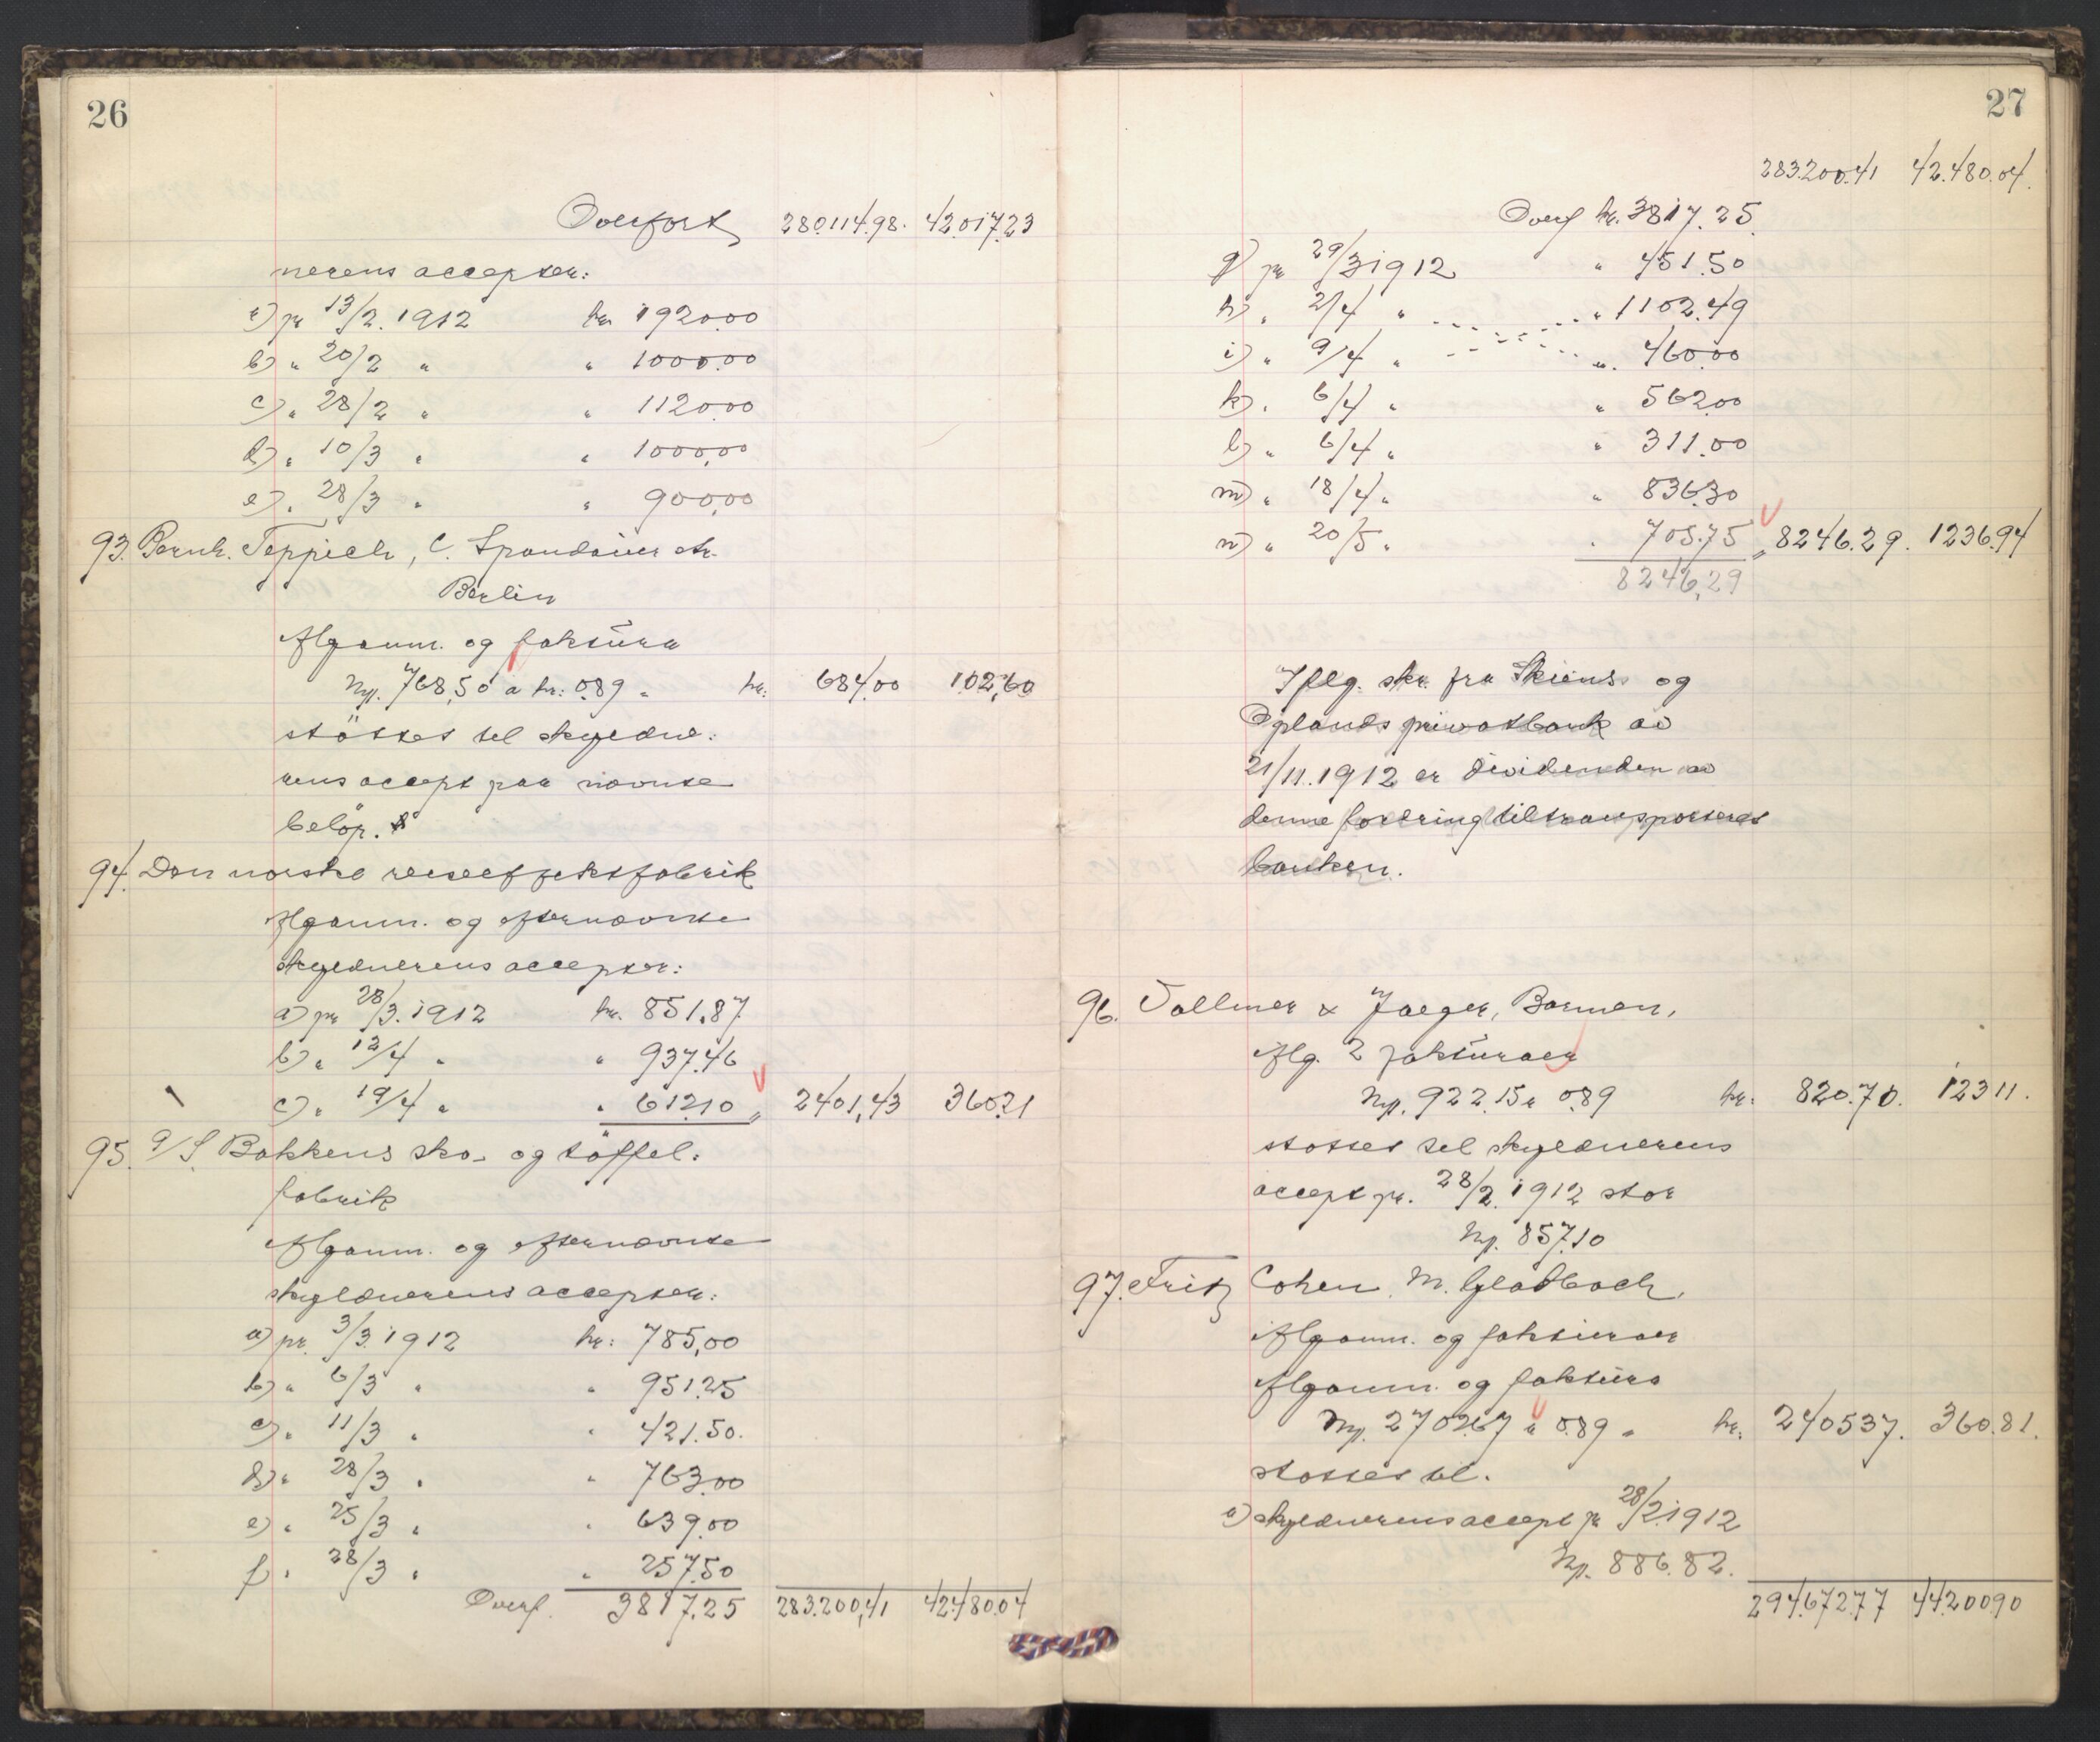 26
Overført 280.114.98. 42.017.23
nerens accepter:
a) pr 13/2. 1912 kr. 1920.00
b) " 20/2 " " 1000.00
c) " 28/2 " " 1120.00
d) " 10/3 " " 1000.00
e) " 28/3 " " 900.00
93. Bernh. Teppich, C. Spandauer str.
Berlin
Ifl. anm. og faktura
Rm. 768,50 a kr: 0.89 = kr: 684.00 102,60
støttet til skyldne:
rens accept paa nævnte
beløp.
94. Den norske reiseeffektfabrik
Ifl. anm. og efternævnte
skyldnerens accepter:
a) pr 28/3. 1912 kr. 851.87
b) " 12/4 " " 937.46
c) " 19/4 " " 612.10 " 2401,43 360.21
95. A/S. Bakkens sko- og tøffel:
fabrik
Ifl. anm. og efternævnte
skyldnerens accepter:
a) pr. 3/3. 1912 kr: 785,00
b) " 6/3 " " 951.25
c) " 11/3 " " 421.50.
d) " 28/3 " " 763.00
e) " 25/3 " " 639.00
f) " 28/3 " " 257.50
Overf. 3817.25 283.200,41 42.480.04
27
283.200.41 42.480.04.
Overf kr. 3817.25.
g) pr 29/3 1912 " 451.50
h) " 2/4 " " 1102.49
i) " 9/4 " " 460.00
k) " 6/4 " " 562.00
l) " 6/4 " " 311.00
m) " 18/4 " " 836.30
n) " 20/5 " " 705.75 " 8246.29. 1236.94
8246,29
Iflg. skr. fra Skiens og
Oplands privatbank av
21/11. 1912 er dividenden av
denne fordring tiltransporteret
banken.
96. Vollmer & Jaeger, Barmen,
Iflg. 2 fakturaer
Rm. 922.15 a 0.89 kr: 820.70. 123 11.
støttet til skyldnerens
accept pr. 28/2. 1912 stor
Rm. 857.10
97. Fritz Cohen, M. Gladbach,
Ifl. anm. og fakturaer
Ifl. anm. og faktura
Rm. 2702.67 a 0.89 = kr. 2405 37. 360.81.
støttet til.
a) skyldnerens accept pr 28/2. 1912
Rm. 886.82.
294.672.77 44.200.90